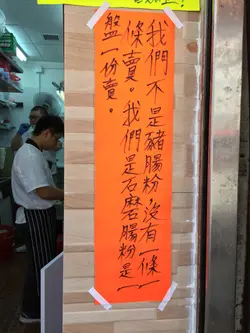 我們不是豬腸粉，沒有一條一
條賣。我們是石磨腸粉是一
盤一份賣。